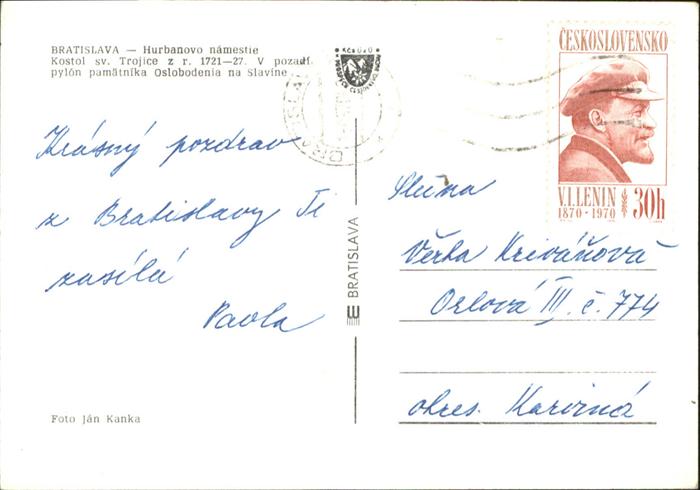 BRATISLAVA — Hurbanovo námestie
Kostol sv. Trojice z r. 1721—27. V pozadí
pylón pamätníka Oslobodenia na Slavíne
Krásný pozdrav
z Bratislavy Ti
zasílá
Pavla
Foto Ján Kanka
BRATISLAVA
ČESKOSLOVENSKO
V.I.LENIN
1870-1970
30h
Slečna
Věrka Kriváňová
Orlová III. č. 774
okres. Karviná